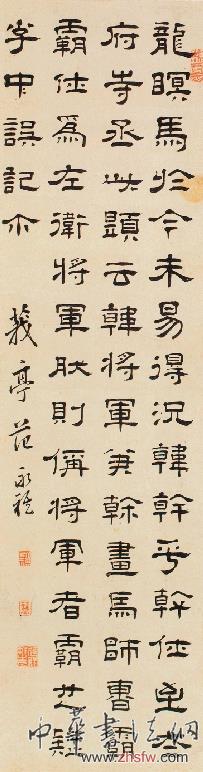 龍瞑馬於今未易得況韓幹乎幹仕至太
府寺丞此題云韓將軍兼幹畫馬師曹霸
霸仕為左衛將軍肰則偁將軍者霸也疑
中誤記尒
莪亭范永祺
中華書法網
www.zhsfw.com